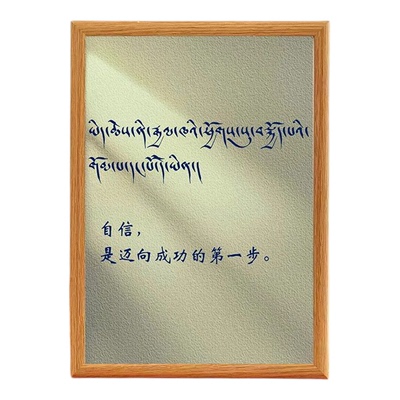 ཡིད་ཆེས་ནི་རྒྱལ་ཁའི་ཕྱོགས་སུ་བསྐྱོད་པའི་
གོམ་པ་དང་པོ་ཡིན།།
自信，
是迈向成功的第一步。